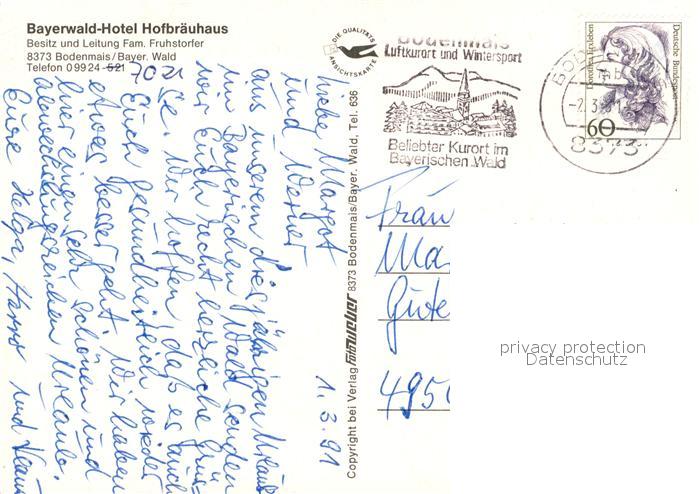 Bayerwald-Hotel Hofbräuhaus
Besitz und Leitung Fam. Fruhstorfer
8373 Bodenmais/Bayer. Wald
Telefon 09924-521 7021
1.3.91
Liebe Margot
und Werner
aus unserem diesjährigen Urlaub
im Bayerischen Wald senden
wir Euch recht herzliche Grüs-
se. Wir hoffen daß es auch
Euch gesundheitlich wieder
etwas besser geht. Wir haben
hier einen sehr schönen und
abwechslungsreichen Urlaub.
Eure Helga, Harro und Klaus
DIE QUALITÄTS
ANSICHTSKARTE
Copyright bei Verlag 8373 Bodenmais/Bayer. Wald, Tel. 636
Bodenmais
Luftkurort und Wintersport
Beliebter Kurort im
Bayerischen Wald
8373
60
Deutsche Bundespost
Dorothea Erxleben
Frau
Ma
Güte
495
privacy protection
Datenschutz